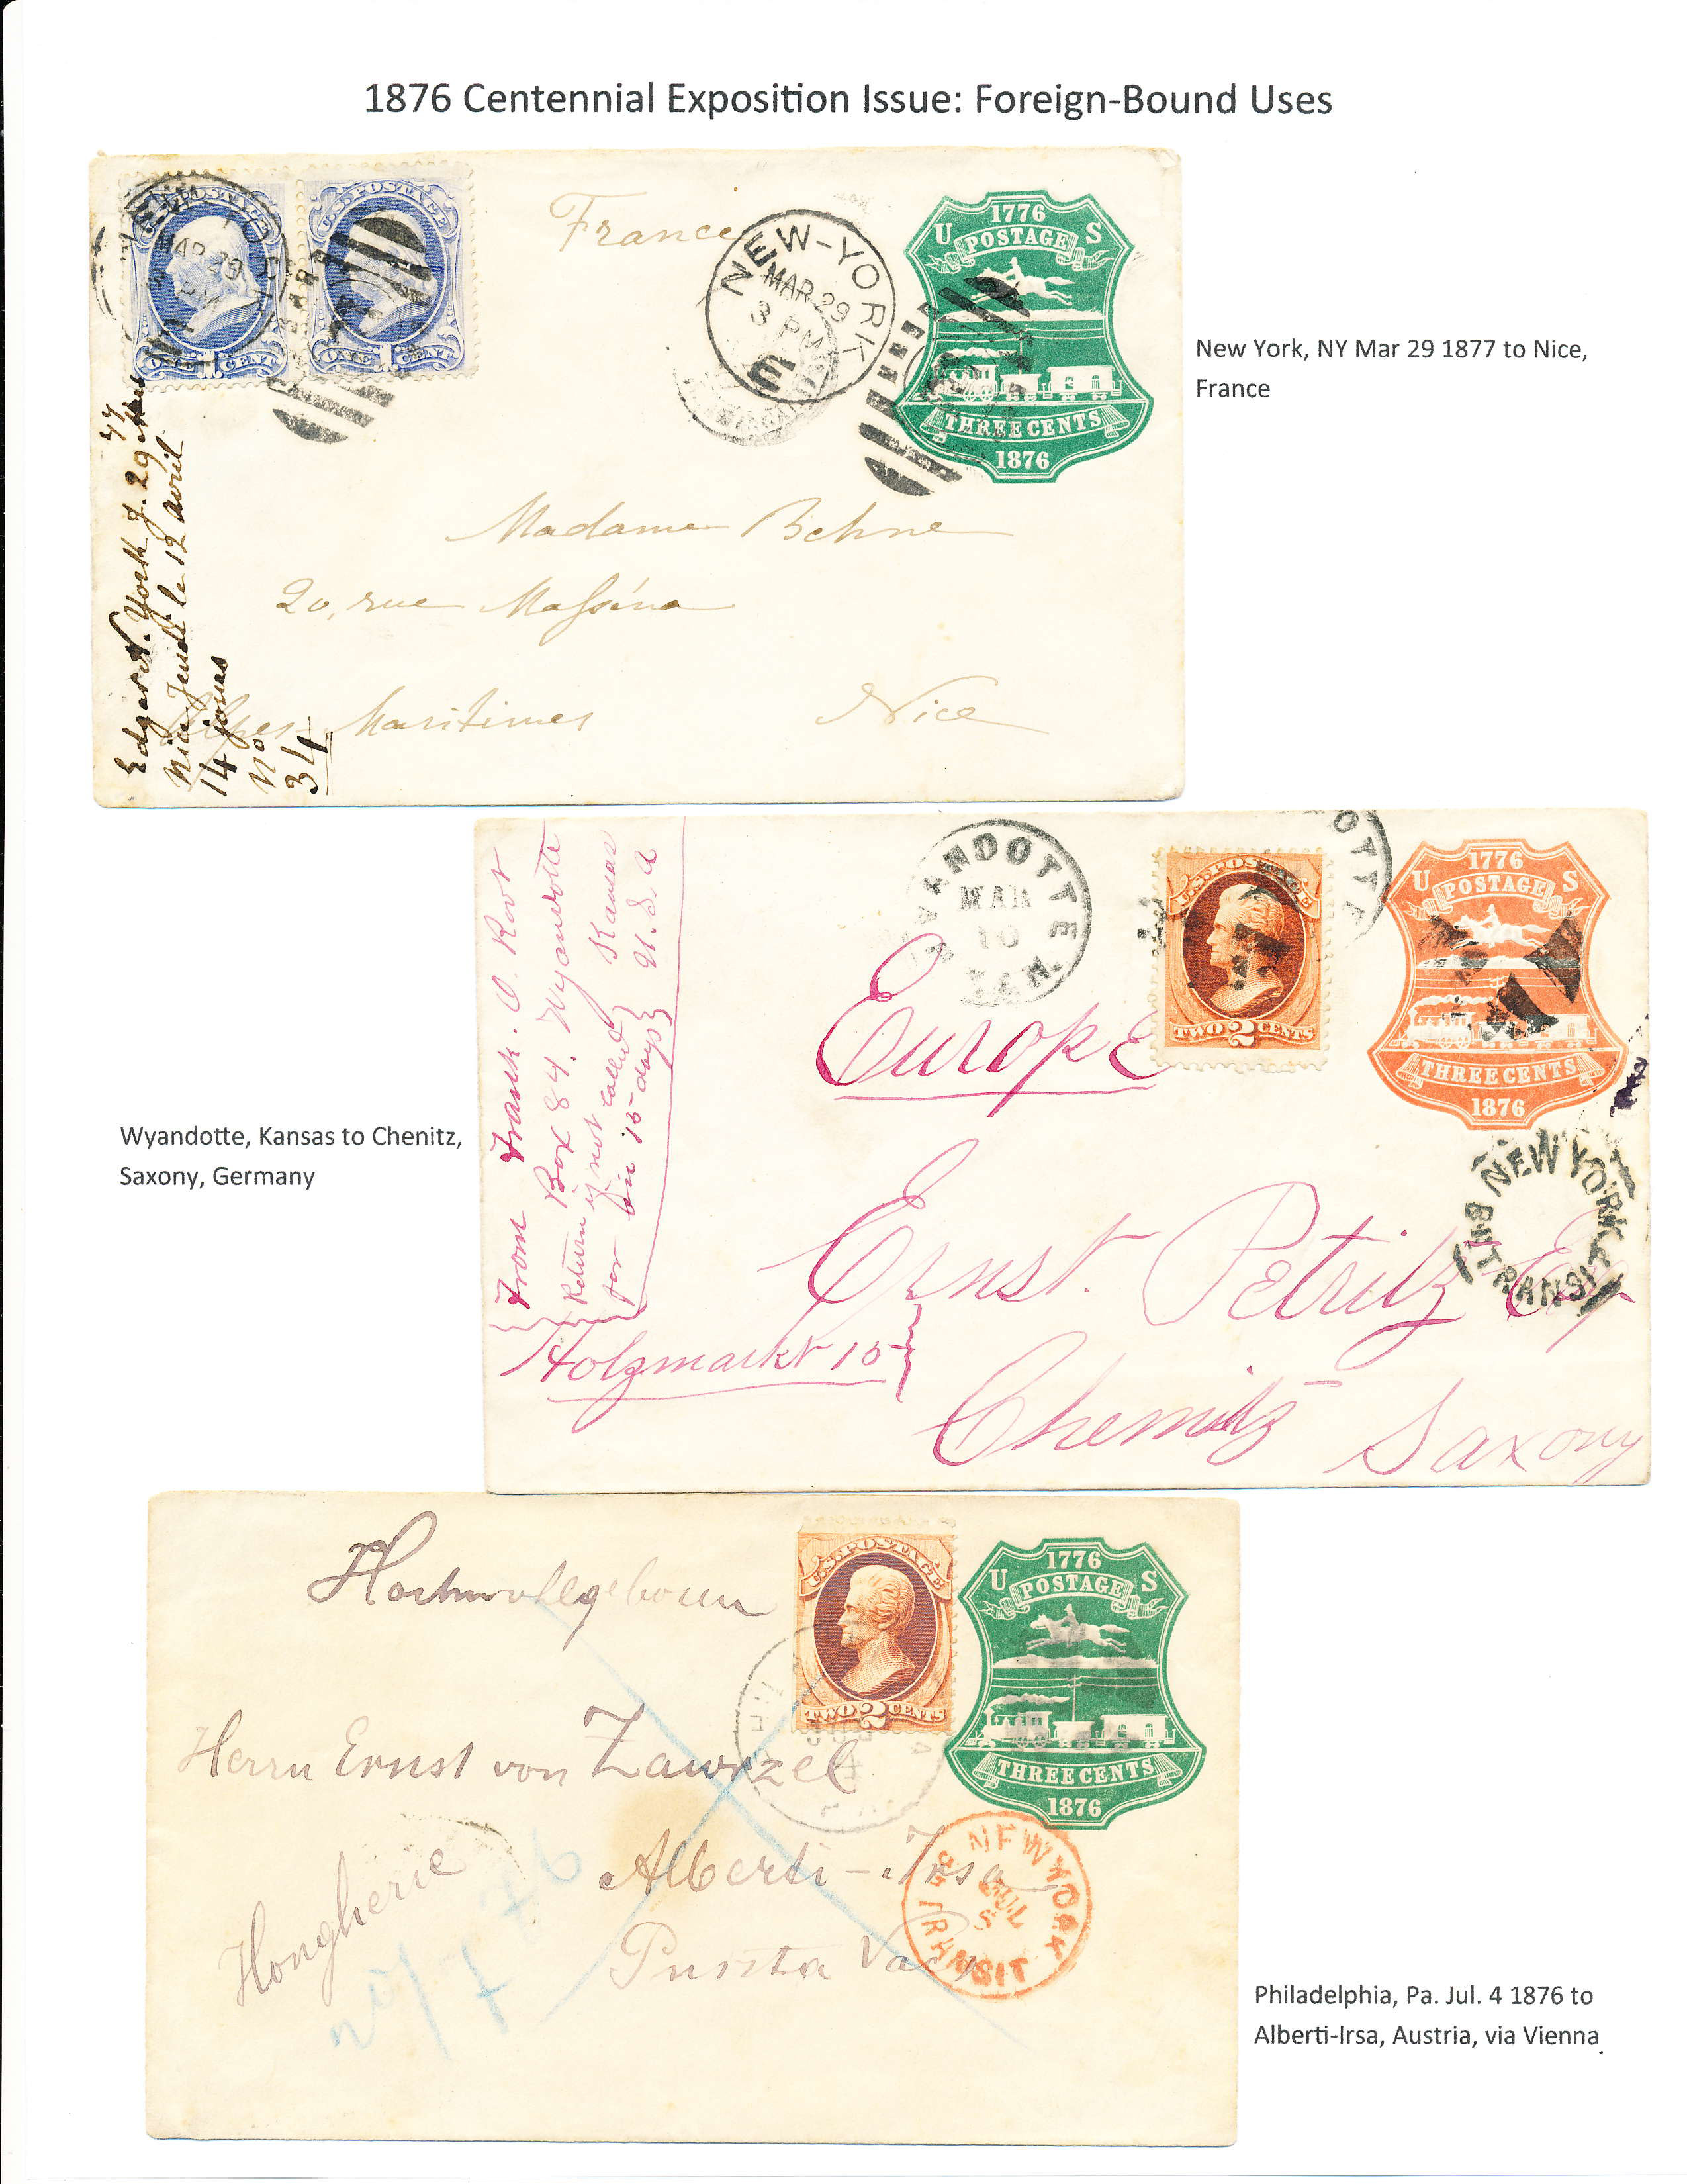 1876 Centennial Exposition Issue: Foreign-Bound Uses
U.S. POSTAGE
ONE 1 CENT
U.S. POSTAGE
ONE 1 CENT
NEW YOR
MAR 29
3 PM
France
NEW-YORK
MAR 29
3 PM
E
1776
U POSTAGE S
THREE CENTS
1876
New York, NY Mar 29 1877 to Nice,
France
Madame Behne
20, rue Masséna
Alpes-Maritimes Nice
Edgar N. York J. 29 Mars 77
Nice Jeudi le 12 avril
14 jours
No
34
WYANDOTTE
MAR
10
KAN.
OTTE
U.S. POSTAGE
TWO 2 CENTS
1776
U POSTAGE S
THREE CENTS
1876
Europe
From Frank. O. Root
Box 84. Wyandotte
Return if not called Kansas
for in 15 days U.S.A
NEW YORK
TRANSIT
Wyandotte, Kansas to Chenitz,
Saxony, Germany
Ernst. Petritz Esq
Holzmarkt 15
Chemnitz Saxony
Hochwohlgeboren
U.S. POSTAGE
TWO 2 CENTS
1776
U POSTAGE S
THREE CENTS
1876
Herrn Ernst von Zawrzel
Alberti-Irsa
Puszta Vacs
Hongherie
NEW YORK
JUL
5
TRANSIT
Philadelphia, Pa. Jul. 4 1876 to
Alberti-Irsa, Austria, via Vienna